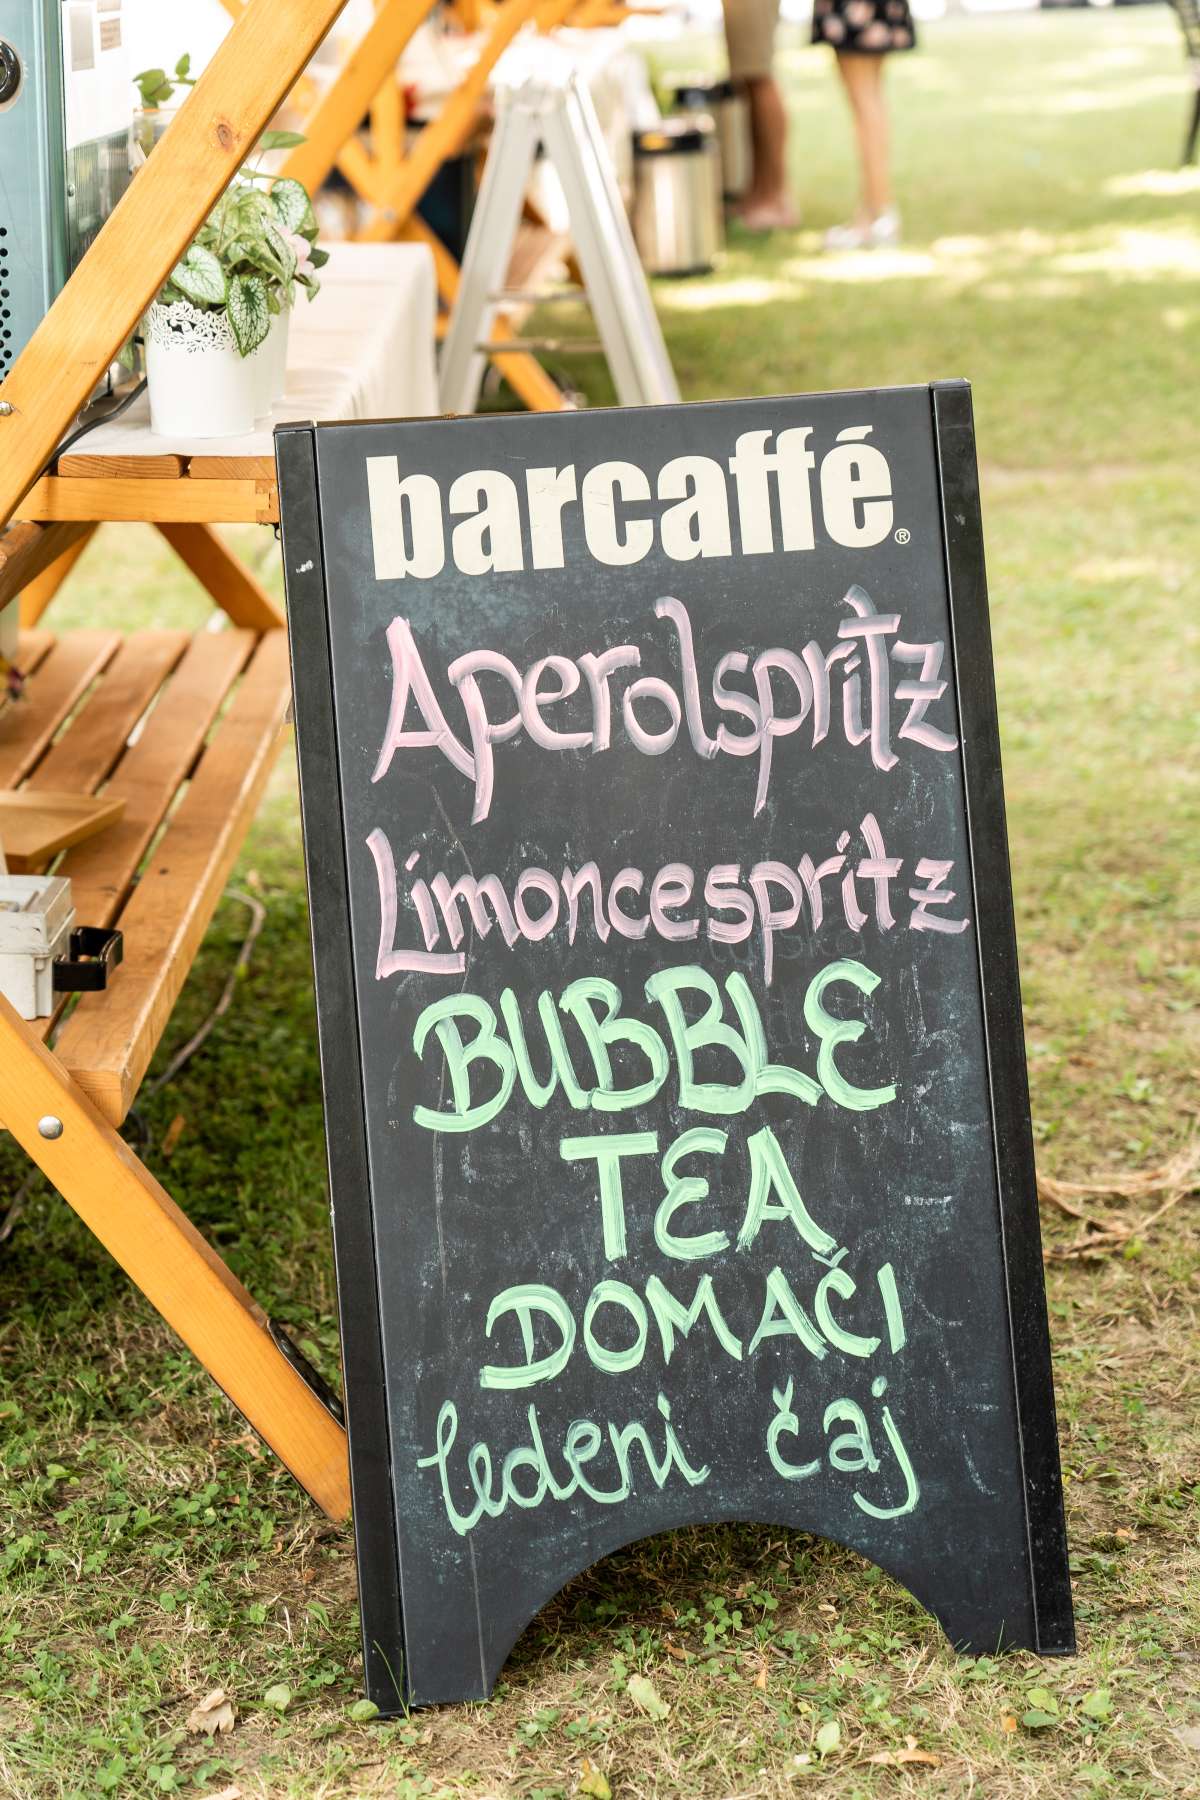 barcaffé®
Aperolspritz
Limoncespritz
BUBBLE
TEA
DOMAČI
ledeni čaj